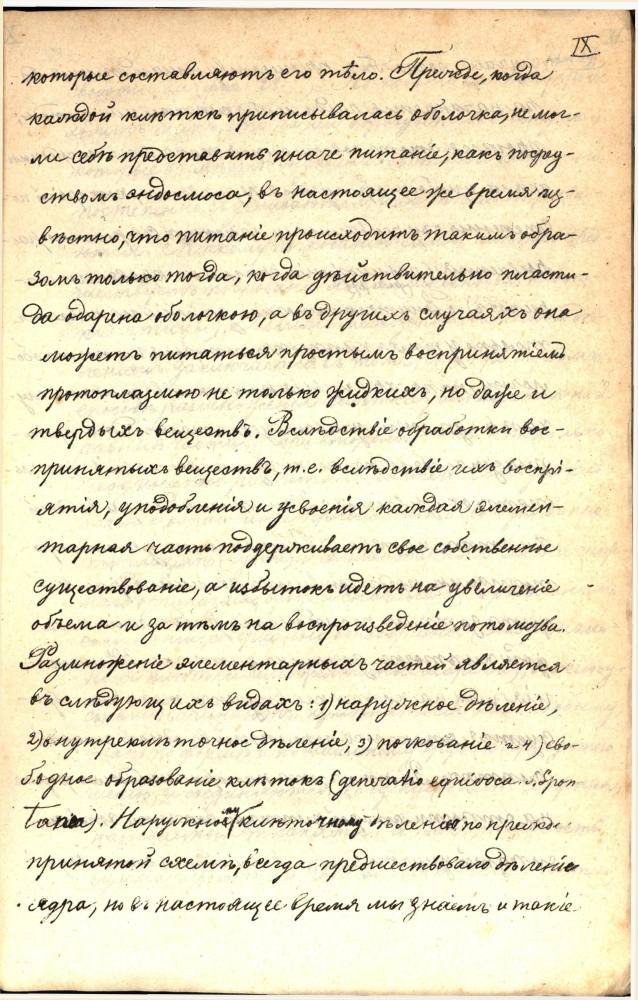 IX.
которые составляютъ его тѣло. Прежде, когда
каждой клѣткѣ приписывалась оболочка, не мог-
ли себѣ представить иначе питаніе, какъ посред-
ствомъ эндосмоса, въ настоящее же время из-
вѣстно, что питаніе происходитъ такимъ обра-
зомъ только тогда, когда дѣйствительно пласти-
да одарена оболочкою, а въ другихъ случаяхъ она
можетъ питаться простымъ воспринятіемъ
протоплазмою не только жидкихъ, но даже и
твердыхъ веществъ. Вслѣдствіе обработки вос-
принятыхъ веществъ, т. е. вслѣдствіе ихъ воспрі-
ятія, уподобленія и усвоенія каждая элемен-
тарная часть поддерживаетъ свое собственное
существованіе, а избытокъ идетъ на увеличеніе
объема и за тѣмъ на воспроизведеніе потомства.
Размноженіе элементарныхъ частей является
въ слѣдующихъ видахъ: 1) наружное дѣленіе,
2) внутреклѣточное дѣленіе, 3) почкованіе и 4) сво-
бодное образованіе клѣтокъ (generatio equivoca s. Spon
tanea). Наружному клѣточному дѣленію по прежде
принятой схемѣ, всегда предшествовало дѣленіе
ядра, но въ настоящее время мы знаемъ и такіе